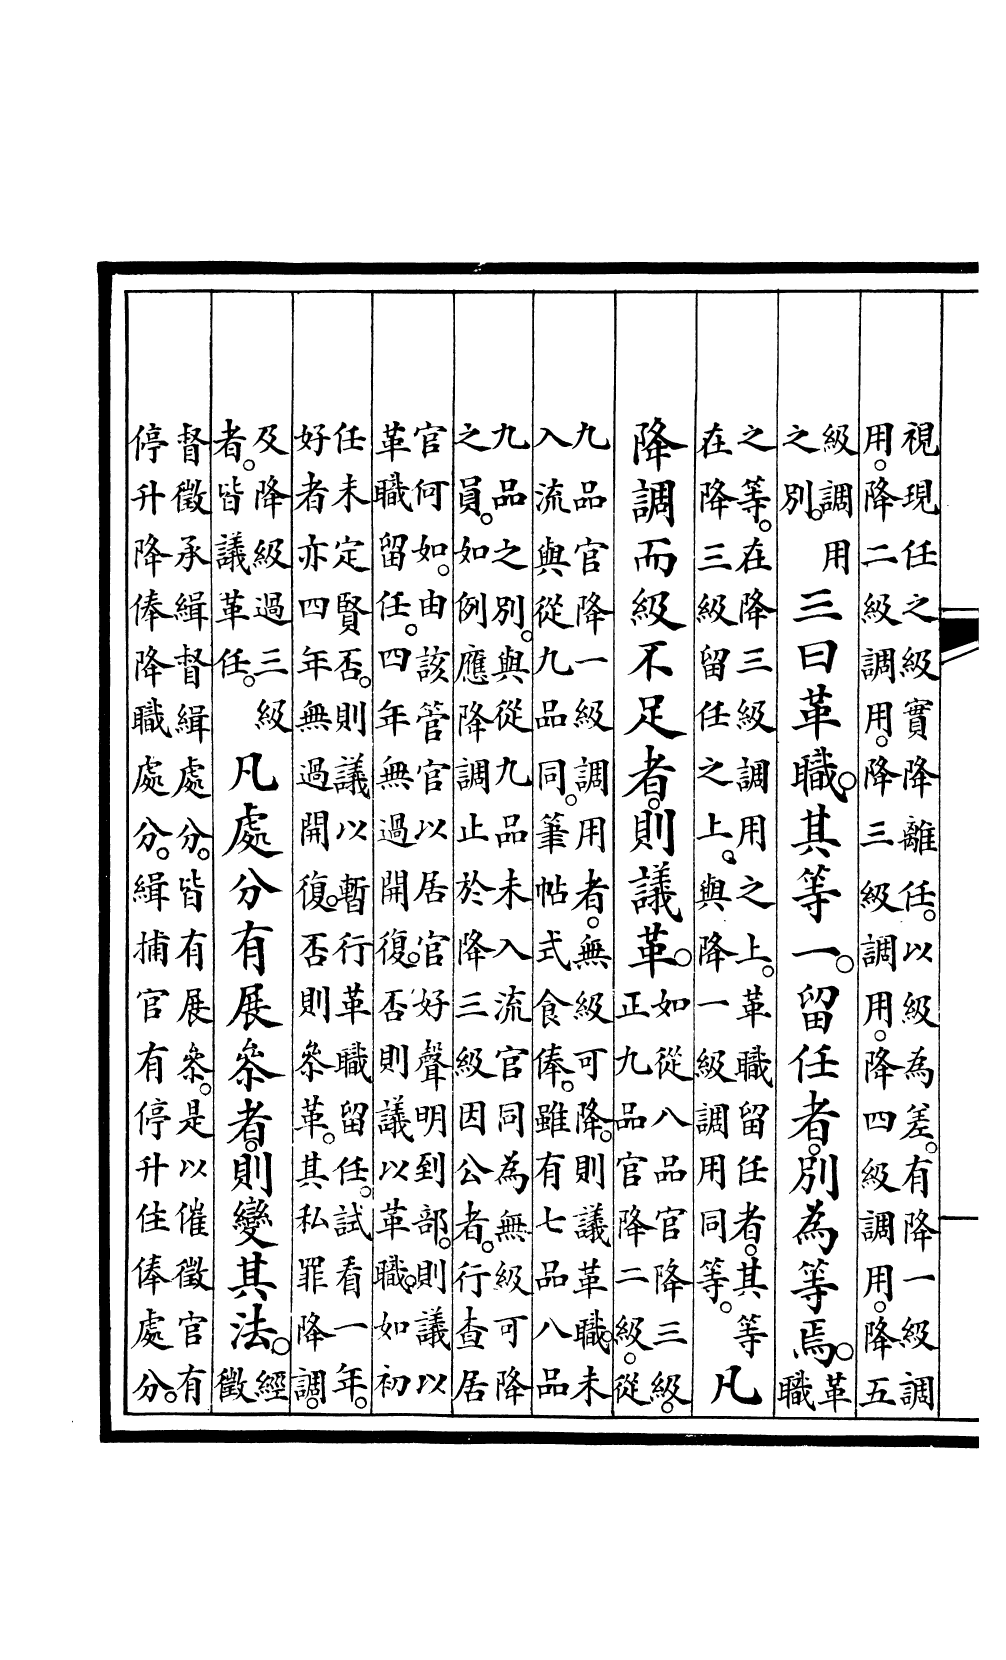 視現任之級實降離任。以級為差。有降一級調
用。降二級調用。降三級調用。降四級調用。降五
級調用
之別。
三曰革職。其等一。留任者。別為等焉。
革
職
之等。在降三級調用之上。革職留任者。其等
在降三級留任之上。與降一級調用同等。
凡
降調而級不足者。則議革。
如從八品官降三級。
正九品官降二級。從
九品官降一級調用者。無級可降。則議革職。未
入流與從九品同。筆帖式食俸。雖有七品八品
九品之別。與從九品未入流官同為無級可降
之員。如例應降調止於降三級因公者。行查居
官何如。由該管官以居官好聲明到部。則議以
革職留任。四年無過開復。否則議以革職。如初
任未定賢否。則議以暫行革職留任。試看一年。
好者亦四年無過開復。否則叅革。其私罪降調。
及降級過三級
者。皆議革任。
凡處分有展叅者。則變其法。
經
徵
督徵承緝督緝處分。皆有展叅。是以催徵官有
停升降俸降職處分。緝捕官有停升住俸處分。